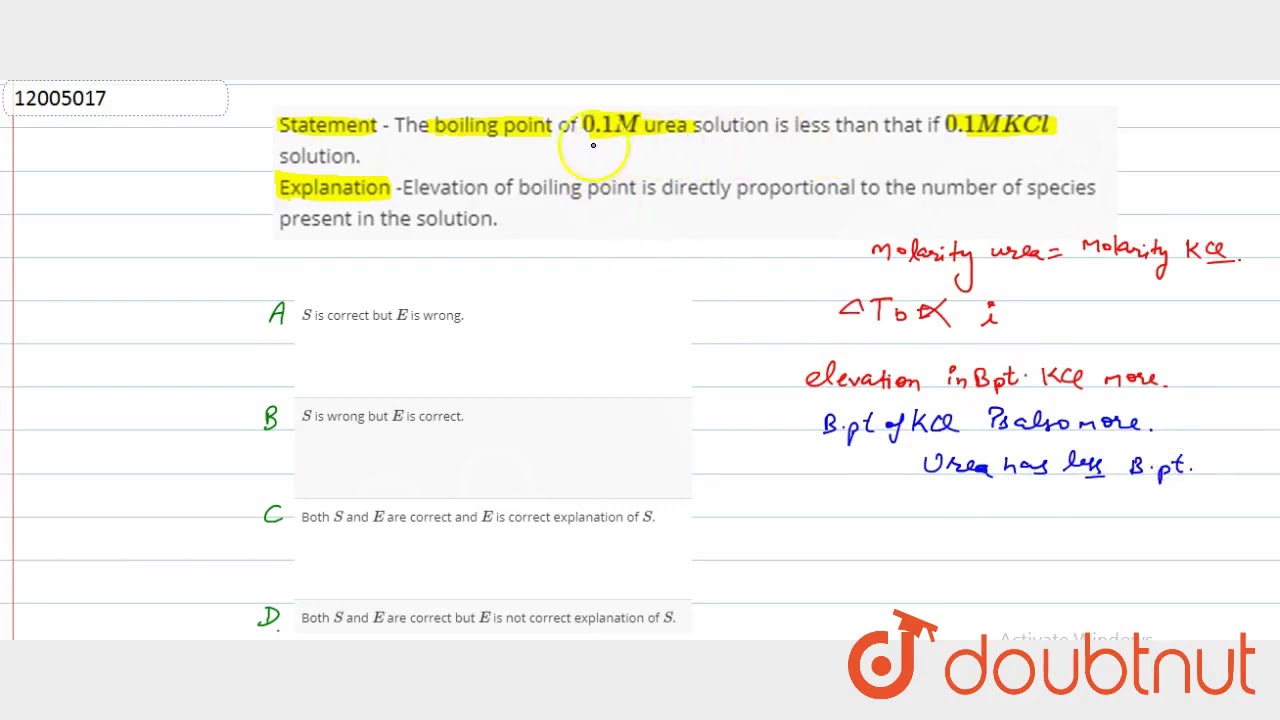 12005017
Statement - The boiling point of 0.1M urea solution is less than that if 0.1MKCl
solution.
Explanation -Elevation of boiling point is directly proportional to the number of species
present in the solution.
Molarity urea = Molarity KCl.
ΔTb ∝ i
A S is correct but E is wrong.
elevation in Bpt. KCl more.
B S is wrong but E is correct.
B.pt of KCl is also more.
Urea has less B.pt.
C Both S and E are correct and E is correct explanation of S.
D Both S and E are correct but E is not correct explanation of S.
Activate Windows
doubtnut